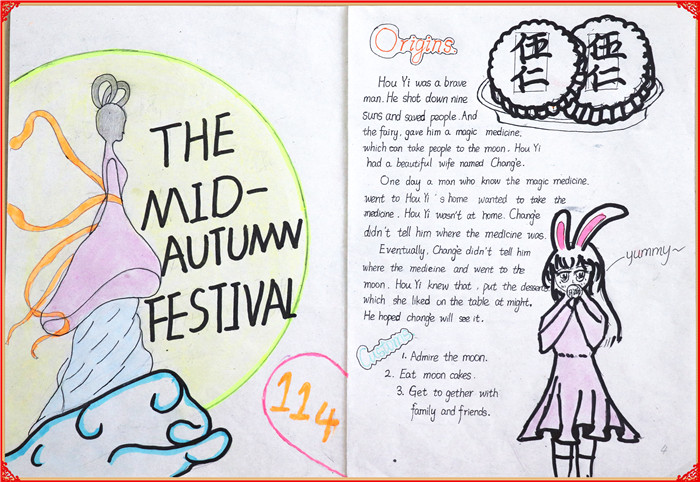 THE
MID-
AUTUMN
FESTIVAL
114
Origins.
伍仁
伍仁
Hou Yi was a brave
man. He shot down nine
suns and saved people. And
the fairy, gave him a magic medicine,
which can take people to the moon. Hou Yi
had a beautiful wife named Chang'e.
One day a man who know the magic medicine.
went to Hou Yi's home wanted to take the
medicine. Hou Yi wasn't at home. Chang'e
didn't tell him where the medicine was.
Eventually, Chang'e didn't tell him
where the medicine and went to the
moon. Hou Yi knew that, put the desserts
which she liked on the table at might.
He hoped change will see it.
yummy~
Customs
1. Admire the moon.
2. Eat moon cakes.
3. Get to gether with
family and friends.
4